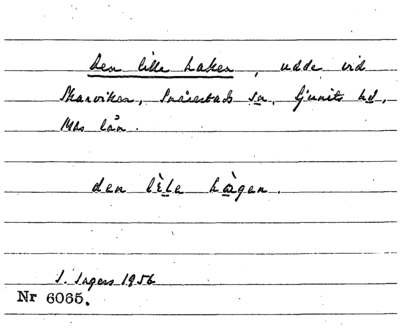 Den lille haken, udde vid
Skarviken, Snårestads sn, Ljunits hd,
Mhs län.
den lè̱le hæ̀gen.
S. Ingers 1956
Nr 6065.